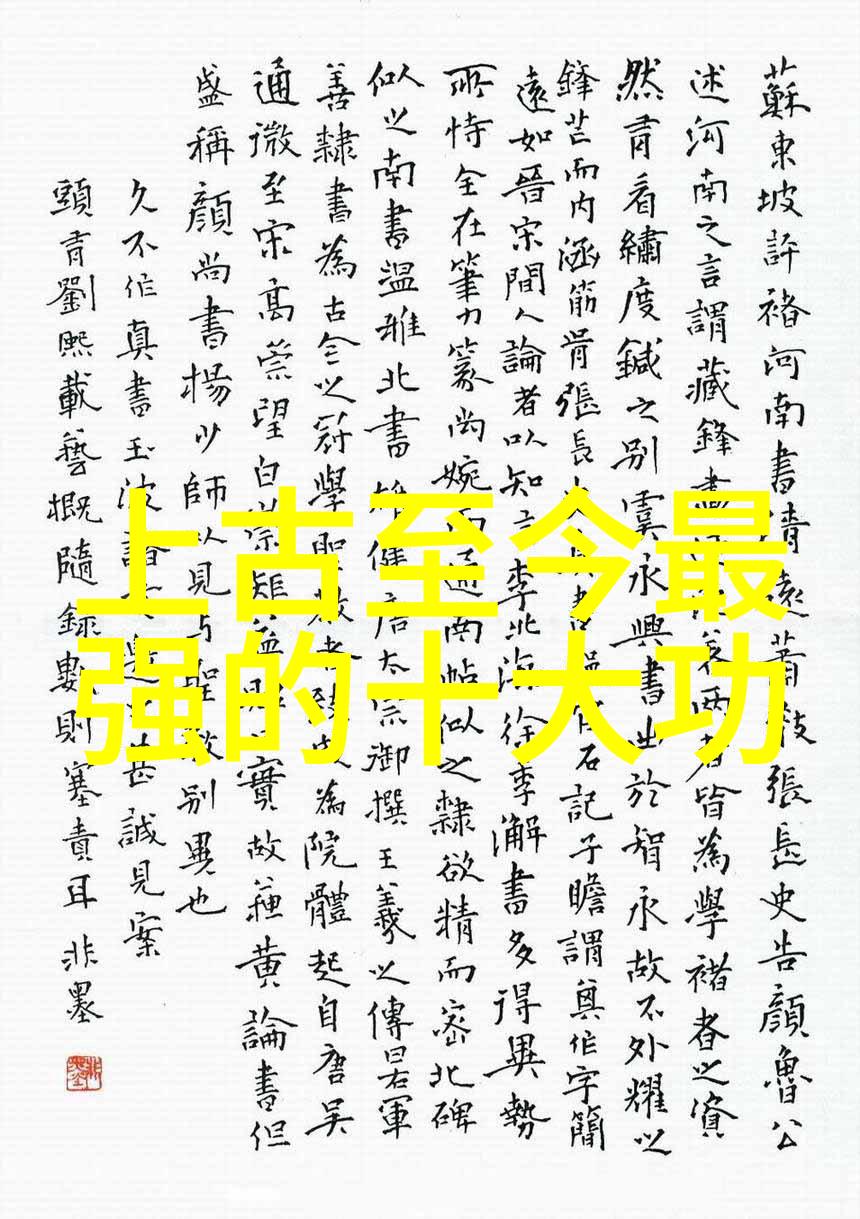 上古至今最
强的十大功
蘇東坡評褚河南書清遠蕭散張長史告顏魯公
述河南之言謂藏鋒畫兩者皆為學褚者之資
然有看繡度鍼之別虞永興書出於智永故不外耀以
鋒芒而內涵筋骨張長書石記子瞻謂其作字簡
遠如晉宋間人論者以知言李北海徐季海書多得異勢
所恃全在筆力篆尚婉而通南帖似之隸欲精而密北碑
似之南書溫雅北書雄健唐太宗御撰王羲之傳軍
善隸書為古今之冠學聖教者為院體起自唐吳
通微至宋高崇望白崇矩益實故蘇黃論書但
盛稱顏尚書楊少師以見與聖教別異也
久不作真書玉波誠見案
頭有劉熙載藝概隨錄數則塞責耳 非墨